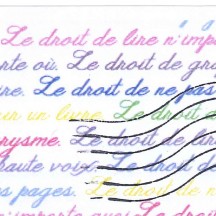 Le droit de lire n'imp
rte où. Le droit de gra
ire. Le droit de ne pas
ur un livre. Le droit
rysme. Le droit de lir
haute voix. Le droit d
es pages. Le droit de
n'importe quoi. Le dr